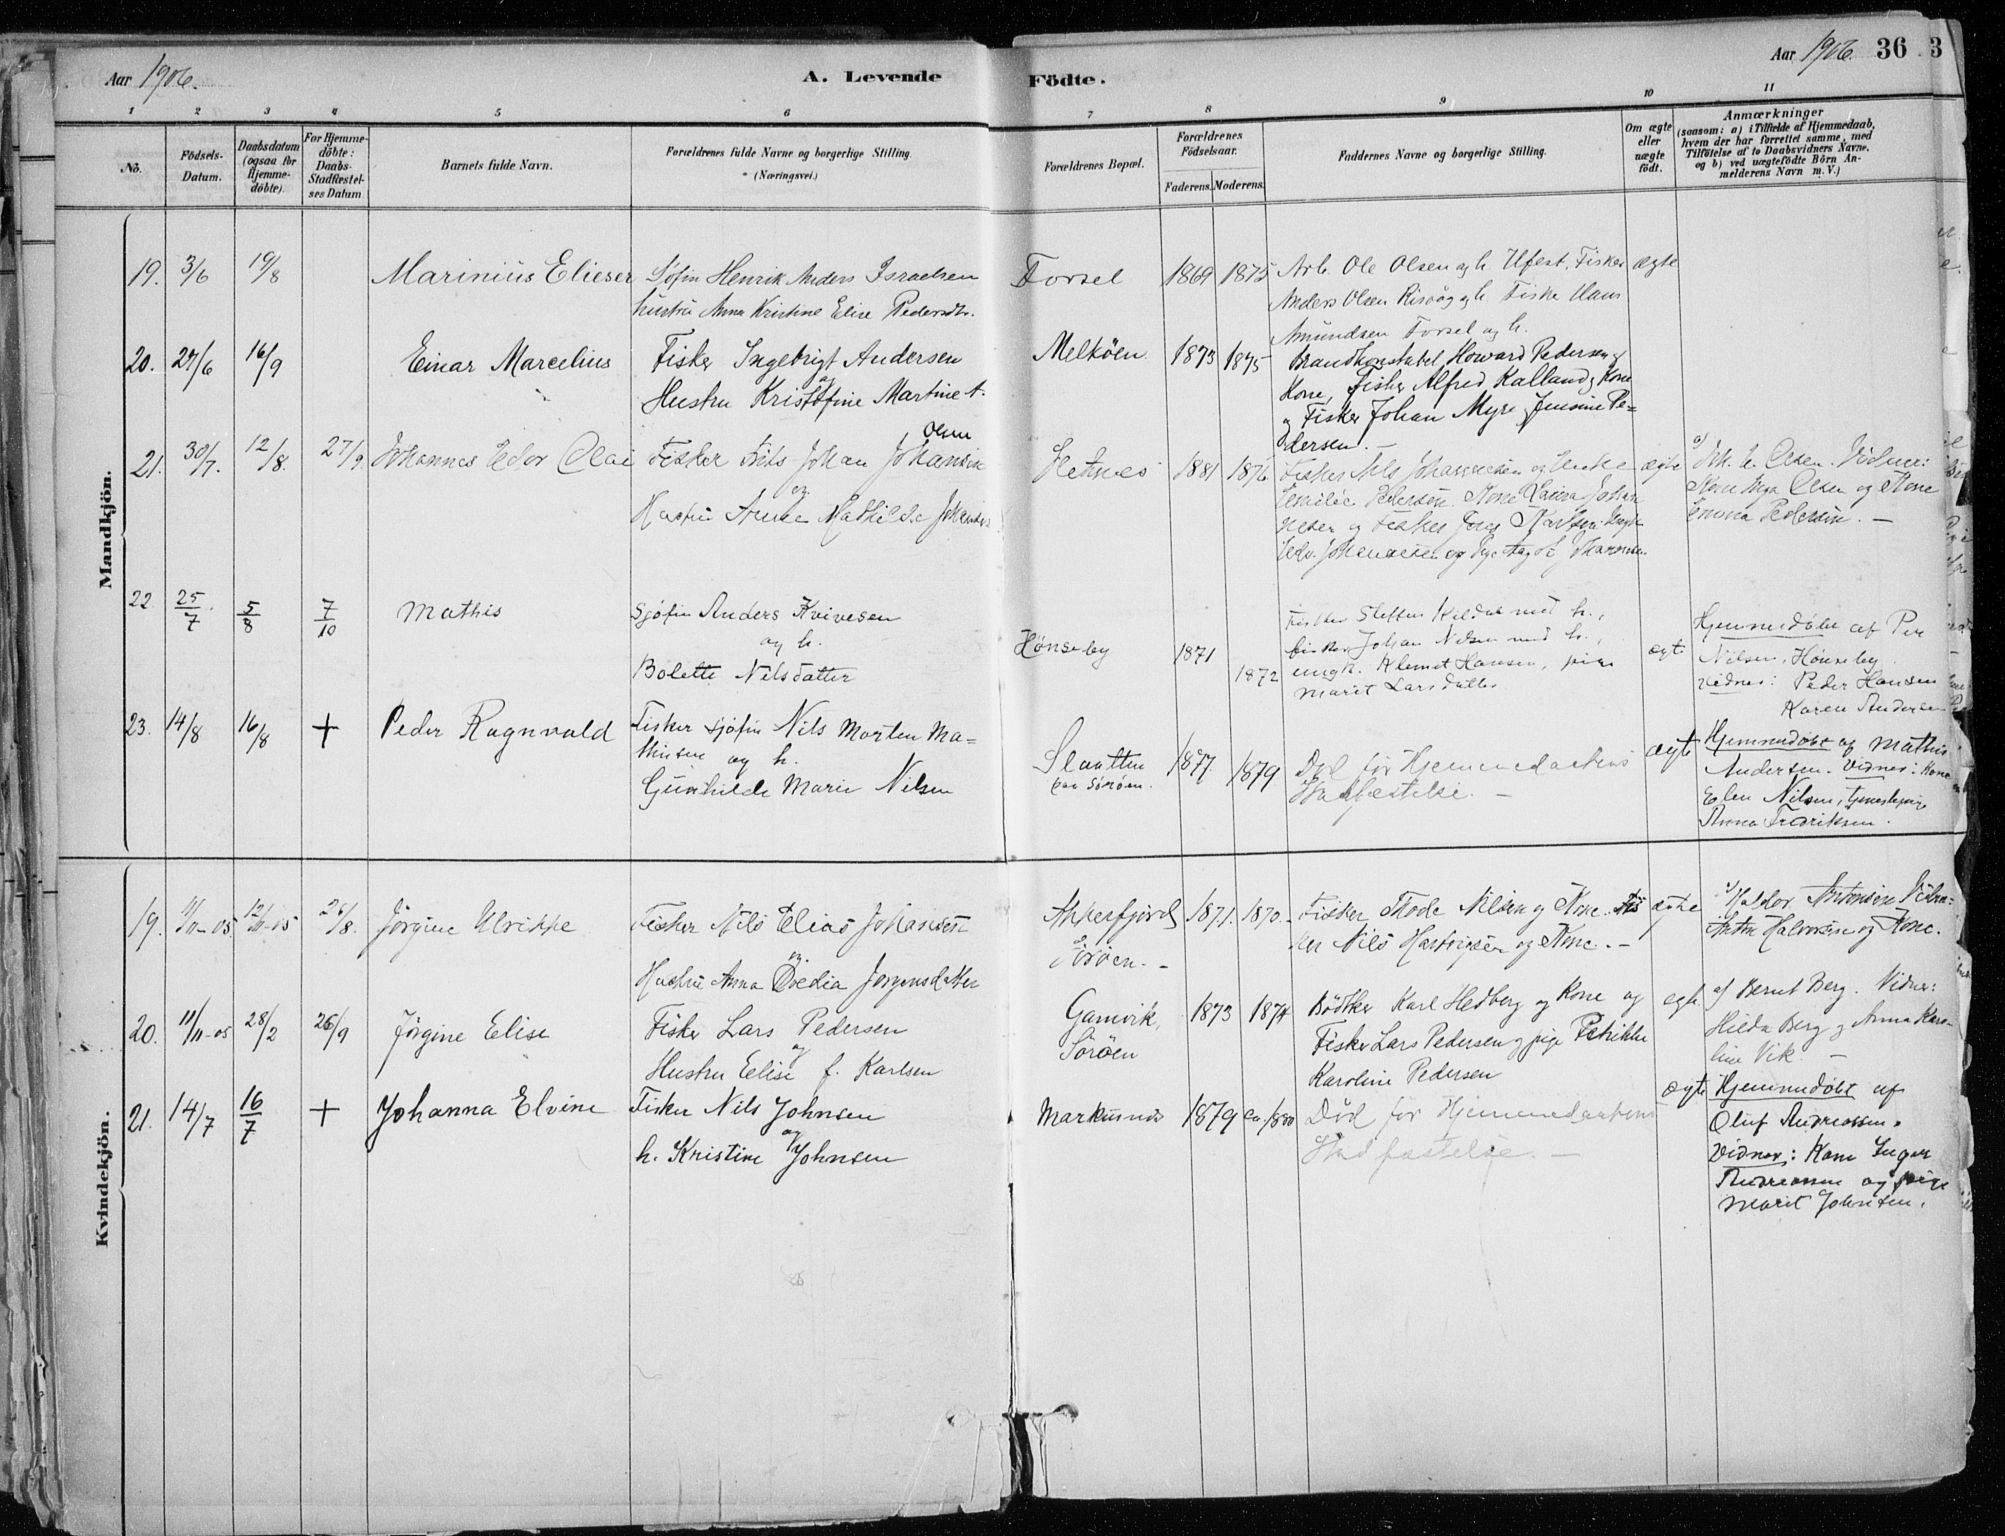 Aar 1906.
A. Levende
Födte.
Aar 1906. 36 3
1 2 3 4 5 6 7 8 9 10 11
No.
Födsels-
Datum.
Daabsdatum
(ogsaa för
Hjemme-
döbte).
For Hjemme-
döbte:
Daabs-
Stadfæstel-
ses Datum
Barnets fulde Navn.
Forældrenes fulde Navne og borgerlige Stilling.
(Næringsvei.)
Forældrenes Bopæl.
Forældrenes
Födselsaar.
Faderens. Moderens.
Faddernes Navne og borgerlige Stilling.
Om ægte
eller
uægte
födt.
Anmærkninger
(saasom: a) i Tilfælde af Hjemmedaab,
hvem der har forrettet samme, med
Tilföielse af to Daabsvidners Navne.
og b) ved uægtefödte Börn An-
melderens Navn m. V.)
Mandkjön.
19. 3/6 19/8 Marinius Elieser
Sjøfin Henrik Anders Israelsen
hustru Anna Kristine Elise Pedersdtr.
Forsøl 1869 1875
Arb. Ole Olsen og h. Fisker
Anders Olsen Risvåg og h. Fisker Hans
Amundsen Forsøl og h.
ægte
20. 27/6 16/9 Einar Marcelius
Fisker Ingebrigt Andersen
og
Hustru Kristofine Martine f.
Olsen
Melkøen 1873 1875
Brandkonstabel Howard Pedersen og
Kone, Fisker Alfred Kalland og Kone
og Fisker Johan Myre og Jensine Pe=
dersen. –
21. 30/7. 12/8. 27/9. Johannes Edor Olai
Fisker Nils Johan Johansen
og
Hustru Anne Mathilde Johansen
1881 1876
Fisker Nils Johannesen og Enke
Emilie Pedersen. Kone Laura Johan
nesen og Fisker
ægte
a/ Joh. E. Olsen. Vidner:
Kone Inga Olsen og Kone
Emma Pedersen. –
22. 25/7. 5/8 7/10 Mathis
Sjøfin Anders Kvivesen
og h.
Bolette Nilsdatter
Hønseby 1871 1872
Fisker Steffen Kildal med h.,
fisker Johan Nilsen med h.,
ungk. Klemet Hansen, pige
Marit Larsdatter
ægte
Hjemmedøbt af Per
Nilsen, Hønseby.
Vidner: Peder Hansen
Karen Andersen
23. 14/8 16/8 + Peder Ragnvald
Fisker sjøfin Nils Morten Ma=
thisen og h.
Gunhilde Marie Nilsen
Slaatten
paa Sørøen. 1877. 1879
Død før Hjemmedaabens
Stadfæstelse. –
ægte
Hjemmedøbt af Mathis
Andersen. Vidner: Kone
Elen Nilsen, tjenestepige
Anna Fredriksen.
Kvindekjön.
19. 11/11-05 12/11-05 26/8. Jørgine Ulrikke
Fisker Nils Elias Johansen
og
Hustru Anna Bredia Jørgensdatter
Akkerfjord
Sørøen. – 1871. 1870.
Fisker Thode Nilsen og Kone. Fis
ker Nils Hartvigsen og Kone. –
ægte
a/ Haldor Antonsen. Vidne:
Anton Halvorsen og Kone.
20. 11/11-05 28/2 26/9 Jørgine Elise
Fisker Lars Pedersen
og
Hustru Elise f. Karlsen
Gamvik,
Sörøen 1873 1874
Bødker Karl Hedberg og Kone og
Fisker Lars Pedersen og pige Petrikke
Karoline Pedersen
ægte
af Bernt Berg. Vidner:
Hilda Berg og Anna Karo-
line Vik. –
21. 14/7 16/7 + Johanna Elvine
Fisker Nils Johnsen
og
h. Kristine Johnsen
Markusnes 1879 ca. 1880
Død før Hjemmedaabens
Stadfæstelse. –
ægte
Hjemmedøbt af
Oluf Andreassen.
Vidner: Kone Inger
Andreassen og pige
Marit Johnsen.